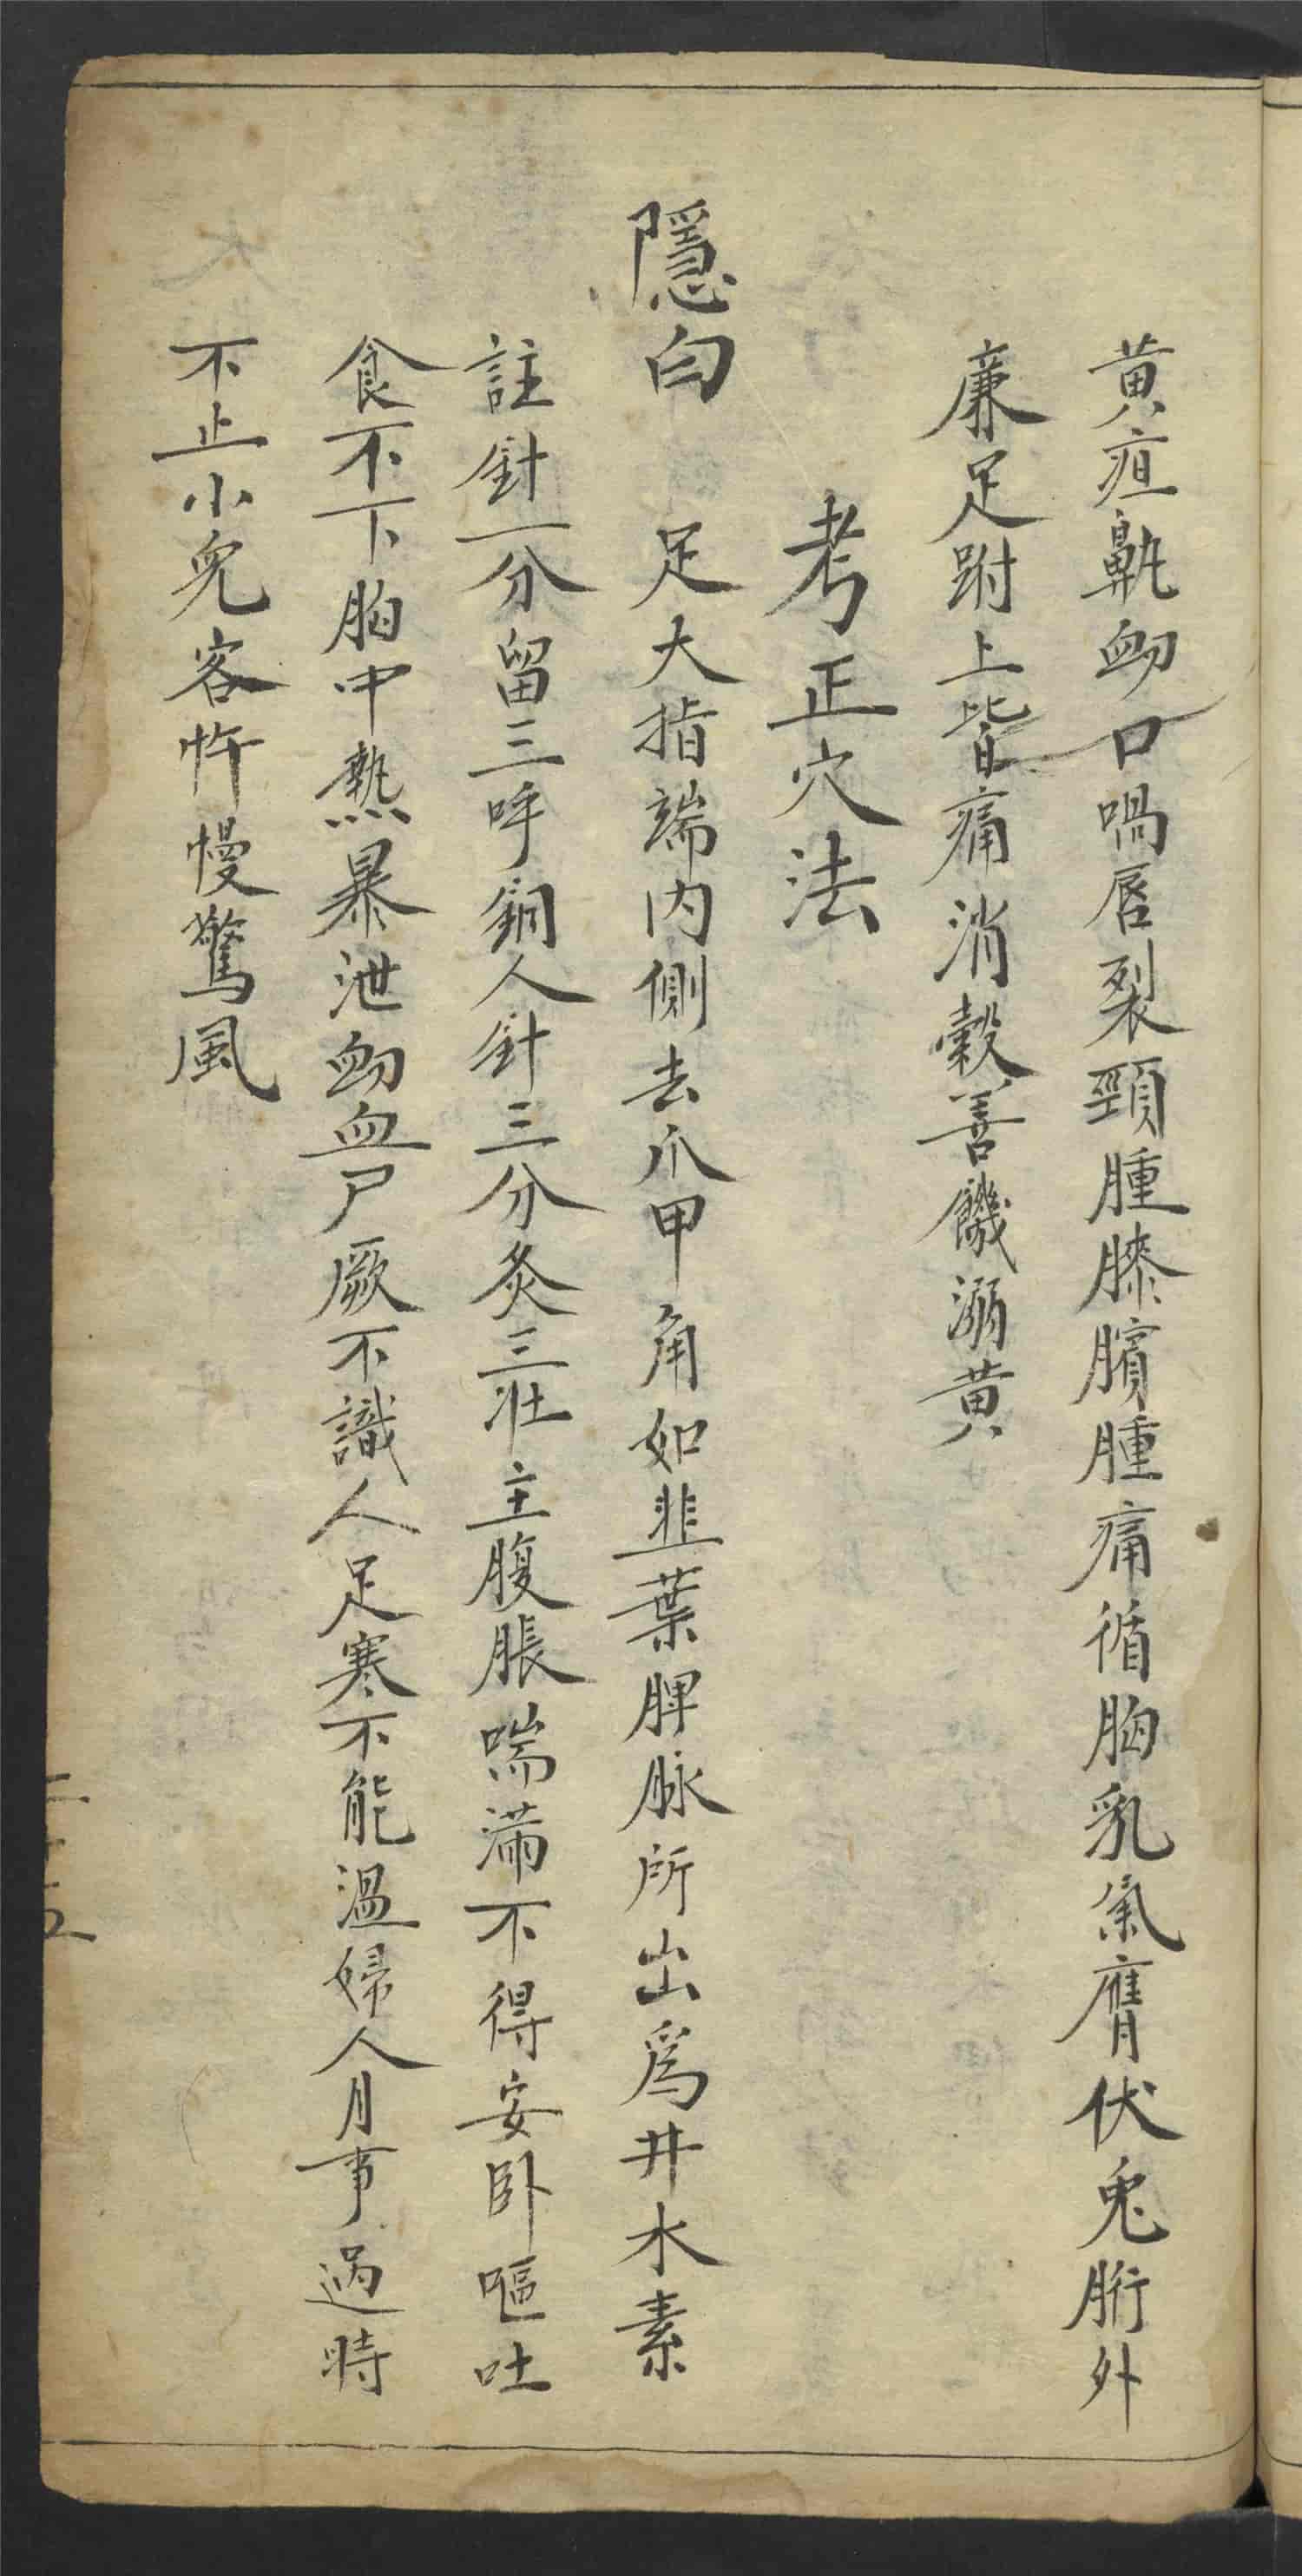 黄疸鼽衂口喎唇裂頸腫膝臏腫痛循胸乳氣膺伏兎胻外
亷足跗上皆痛消穀善饑溺黄
考正穴法
隱白　足大指端内側去爪甲角如韭葉脾脉所出爲井木素
註針一分留三呼銅人針三分灸三壯主腹脹喘滿不得安卧嘔吐
食不下胸中熱暴泄衂血尸厥不識人足寒不能溫婦人月事過時
不止小兒客忤慢驚風